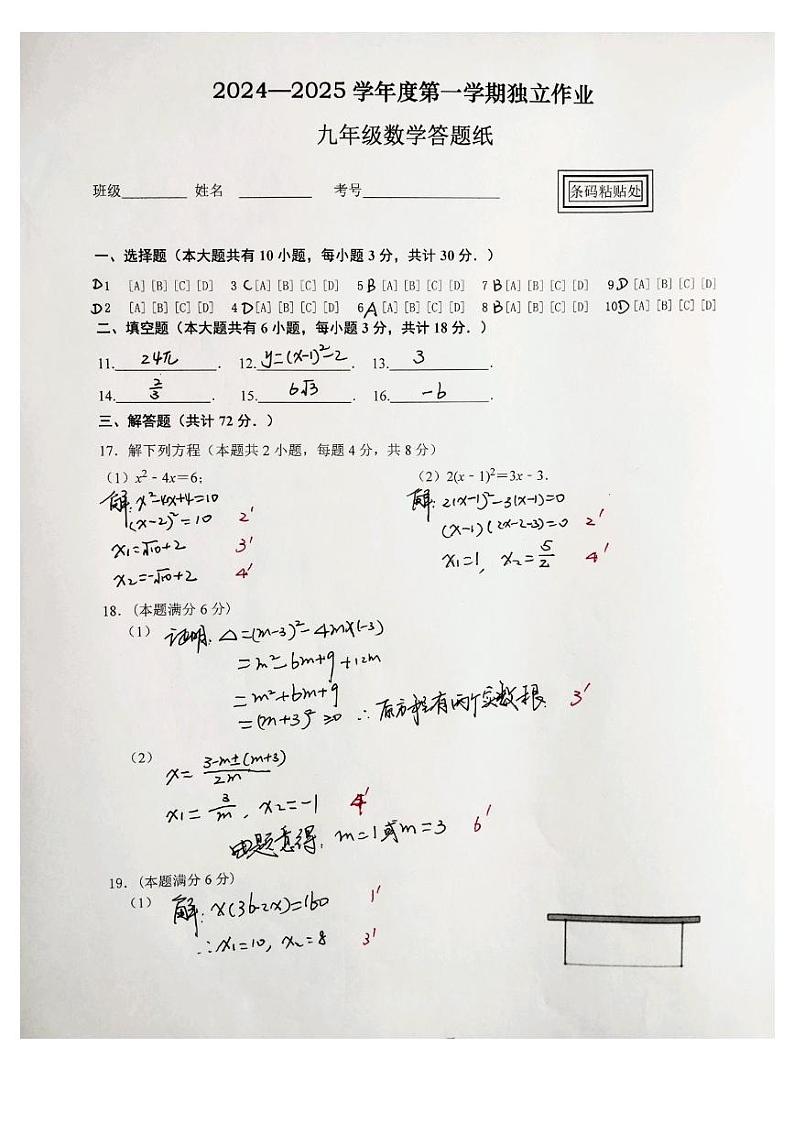 2024—2025 学年度第一学期独立作业
九年级数学答题纸
班级________ 姓名 __________ 考号________________ 条码粘贴处
一、选择题（本大题共有 10 小题，每小题 3 分，共计 30 分．）
D1 [A] [B] [C] [D] 3 C [A] [B] [C] [D] 5 B [A] [B] [C] [D] 7 B [A] [B] [C] [D] 9 D [A] [B] [C] [D]
D2 [A] [B] [C] [D] 4 D [A] [B] [C] [D] 6 A [A] [B] [C] [D] 8 B [A] [B] [C] [D] 10 D [A] [B] [C] [D]
二、填空题（本大题共有 6 小题，每小题 3 分，共计 18 分．）
11. 24π ． 12. y=(x-1)²-2 ． 13. 3 ．
14. 2/3 ． 15. 6√3 ． 16. -6 ．
三、解答题（共计 72 分．）
17．解下列方程（本题共 2 小题，每题 4 分，共 8 分）
（1）x²﹣4x＝6； （2）2(x﹣1)²＝3x﹣3．
解: x²-4x+4=10 解: 2(x-1)²-3(x-1)=0
(x-2)²=10 2' (x-1)(2x-2-3)=0 2'
x₁=√10+2 3' x₁=1, x₂=5/2 4'
x₂=-√10+2 4'
18．（本题满分 6 分）
（1） 证明: △=(m-3)²-4m×(-3)
=m²-6m+9+12m
=m²+6m+9
=(m+3)²≥0 ∴原方程有两个实数根. 3'
（2） x=3-m±(m+3)/2m
x₁=3/m, x₂=-1 4'
由题意得, m=1或m=3 6'
19．（本题满分 6 分）
（1） 解: x(36-2x)=160 1'
∴x₁=10, x₂=8 3'